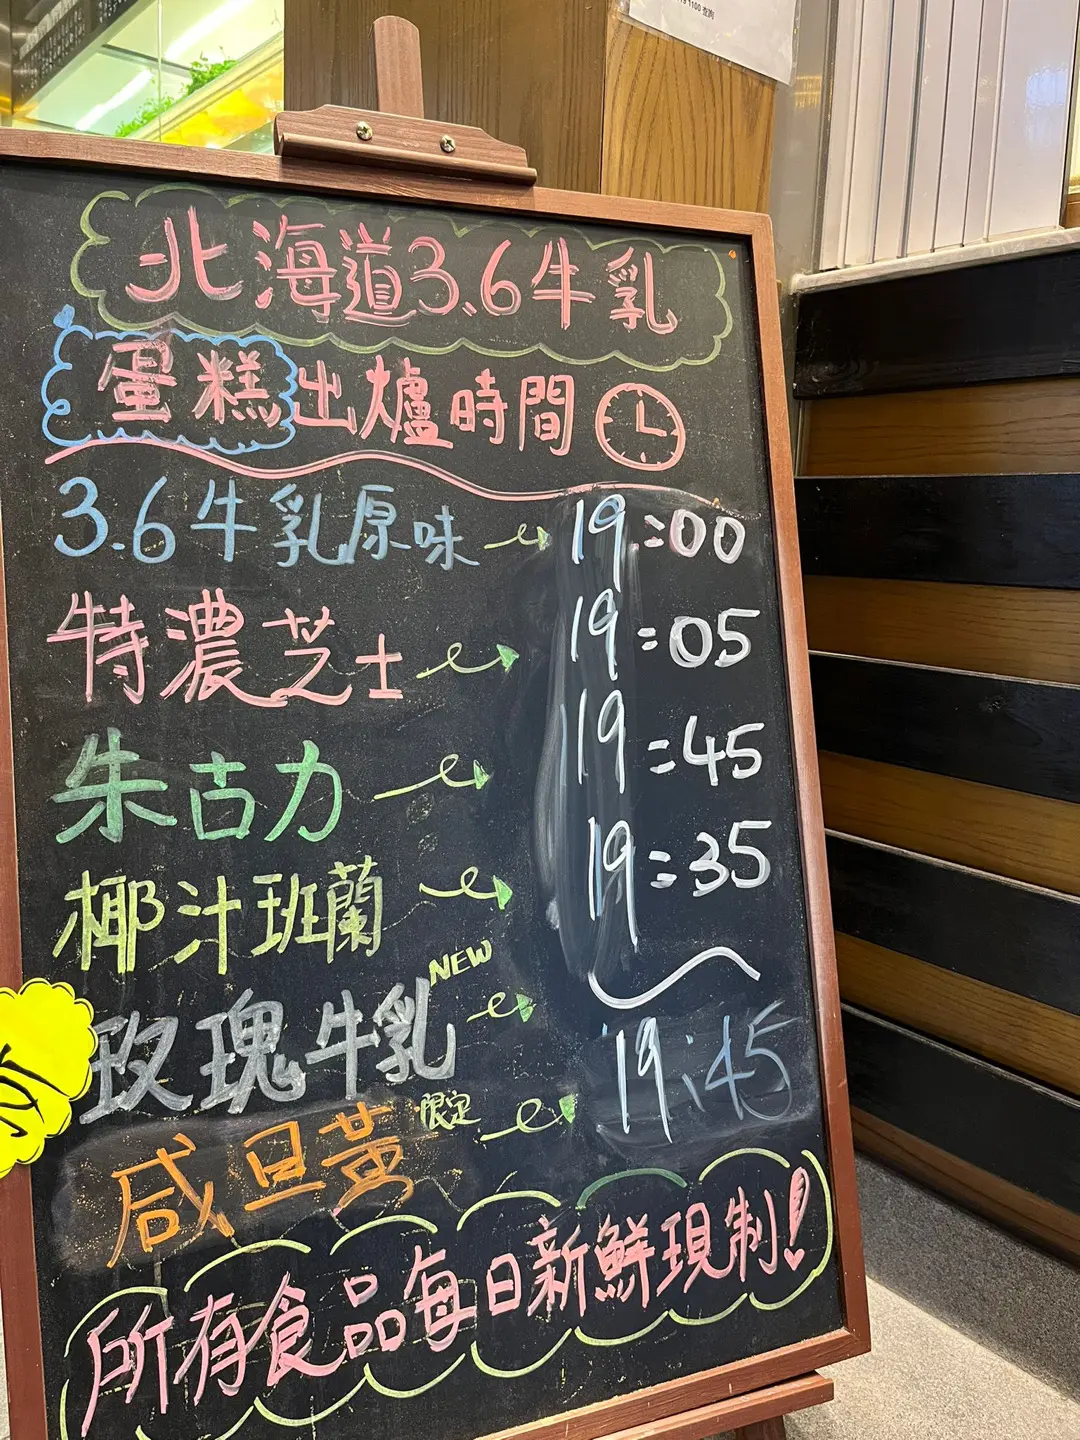 1100 查詢
北海道3.6牛乳
蛋糕出爐時間
3.6牛乳原味 19:00
特濃芝士 19:05
朱古力 19:45
椰汁班蘭 19:35
玫瑰牛乳 NEW
咸旦黃 限定 19:45
所有食品每日新鮮現制!